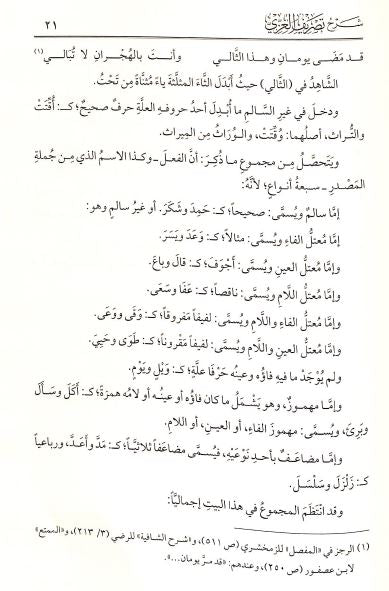 شرح تصريف العزي ٢١
قد مَضَى يومانِ وهذا الثَّالي وأنتَ بالهُجْرانِ لا تُبَالي (١)
الشَّاهِدُ في (الثَّالي) حيثُ أَبْدَلَ الثَّاءَ المثلَّثةَ ياءً مُثنَّاةً مِن تَحْتُ.
ودخل في غيرِ السَّالمِ ما أُبْدِلَ أحدُ حروفهِ العلَّةِ حرفٌ صحيحٌ؛ كـ: أُقِّتَتْ
والتُّراث، أصلُهما: وُقِّتَتْ، والوُرَاثُ مِن الميراث.
ويَتَحصَّلُ مِـن مجموعِ ما ذُكِـرَ: أن الفعلَ ـ وكذا الاسمُ الذي مِن جُملةِ
المَصْدَرِ ـ سبعةُ أنواعٍ؛ لأنَّهُ:
إمَّا سالمٌ ويُسمَّى: صحيحاً؛ كـ: حَمِدَ وشَكَرَ. أو غيرُ سالمٍ وهو:
إمَّا مُعتلُّ الفاءِ ويُسمَّى: مثالاً؛ كـ: وَعَدَ ويَسَرَ.
وإمَّا مُعتلُّ العينِ ويُسمَّى: أَجْوَفَ؛ كـ: قالَ وباعَ.
وإمَّا مُعتلُّ اللَّامِ ويُسمَّى: ناقصاً؛ كـ: عَفَا وسَعَى.
وإمَّا مُعتلُّ الفاءِ واللَّامِ ويُسمَّى: لفيفاً مَفروقاً؛ كـ: وَقَى ووَعَى.
وإمَّا مُعتلُّ العينِ واللَّامِ ويُسمَّى: لفيفاً مَقْروناً؛ كـ: طَوَى وحَيِيَ.
ولم يُوْجَدْ ما فيهِ فاؤُه وعينُه حَرْفَا علَّةٍ؛ كـ: وَيْلٍ ويَوْمٍ.
وإمـا مهموزٌ، وهو يَشْمَلُ ما كان فاؤُه أو عينُه أو لامُه همزةً؛ كـ: أَكَلَ وسَأَلَ
وبَرِئَ، ويُسمَّى: مهموزَ الفاءِ، أو العينِ، أو اللامِ.
وإمَّا مضاعَـفٌ بأحدِ نَوْعَيْهِ، فيُسمَّى مضاعَفاً ثلاثيَّاً؛ كـ: مَدَّ وأَعَدَّ، ورباعياً
كـ: زَلْزَلَ وسَلْسَلَ.
وقد انْتَظَمَ المجموعُ في هذا البيتِ إجماليَّاً:
(١) الرجز في «المفصل» للزمخشري (ص ٥١١)، و«شرح الشافية» للرضي (٣/ ٢١٣)، و«الممتع»
لابن عصفور (ص ٢٥٠)، وعندهم: «قد مرَّ يومان...».